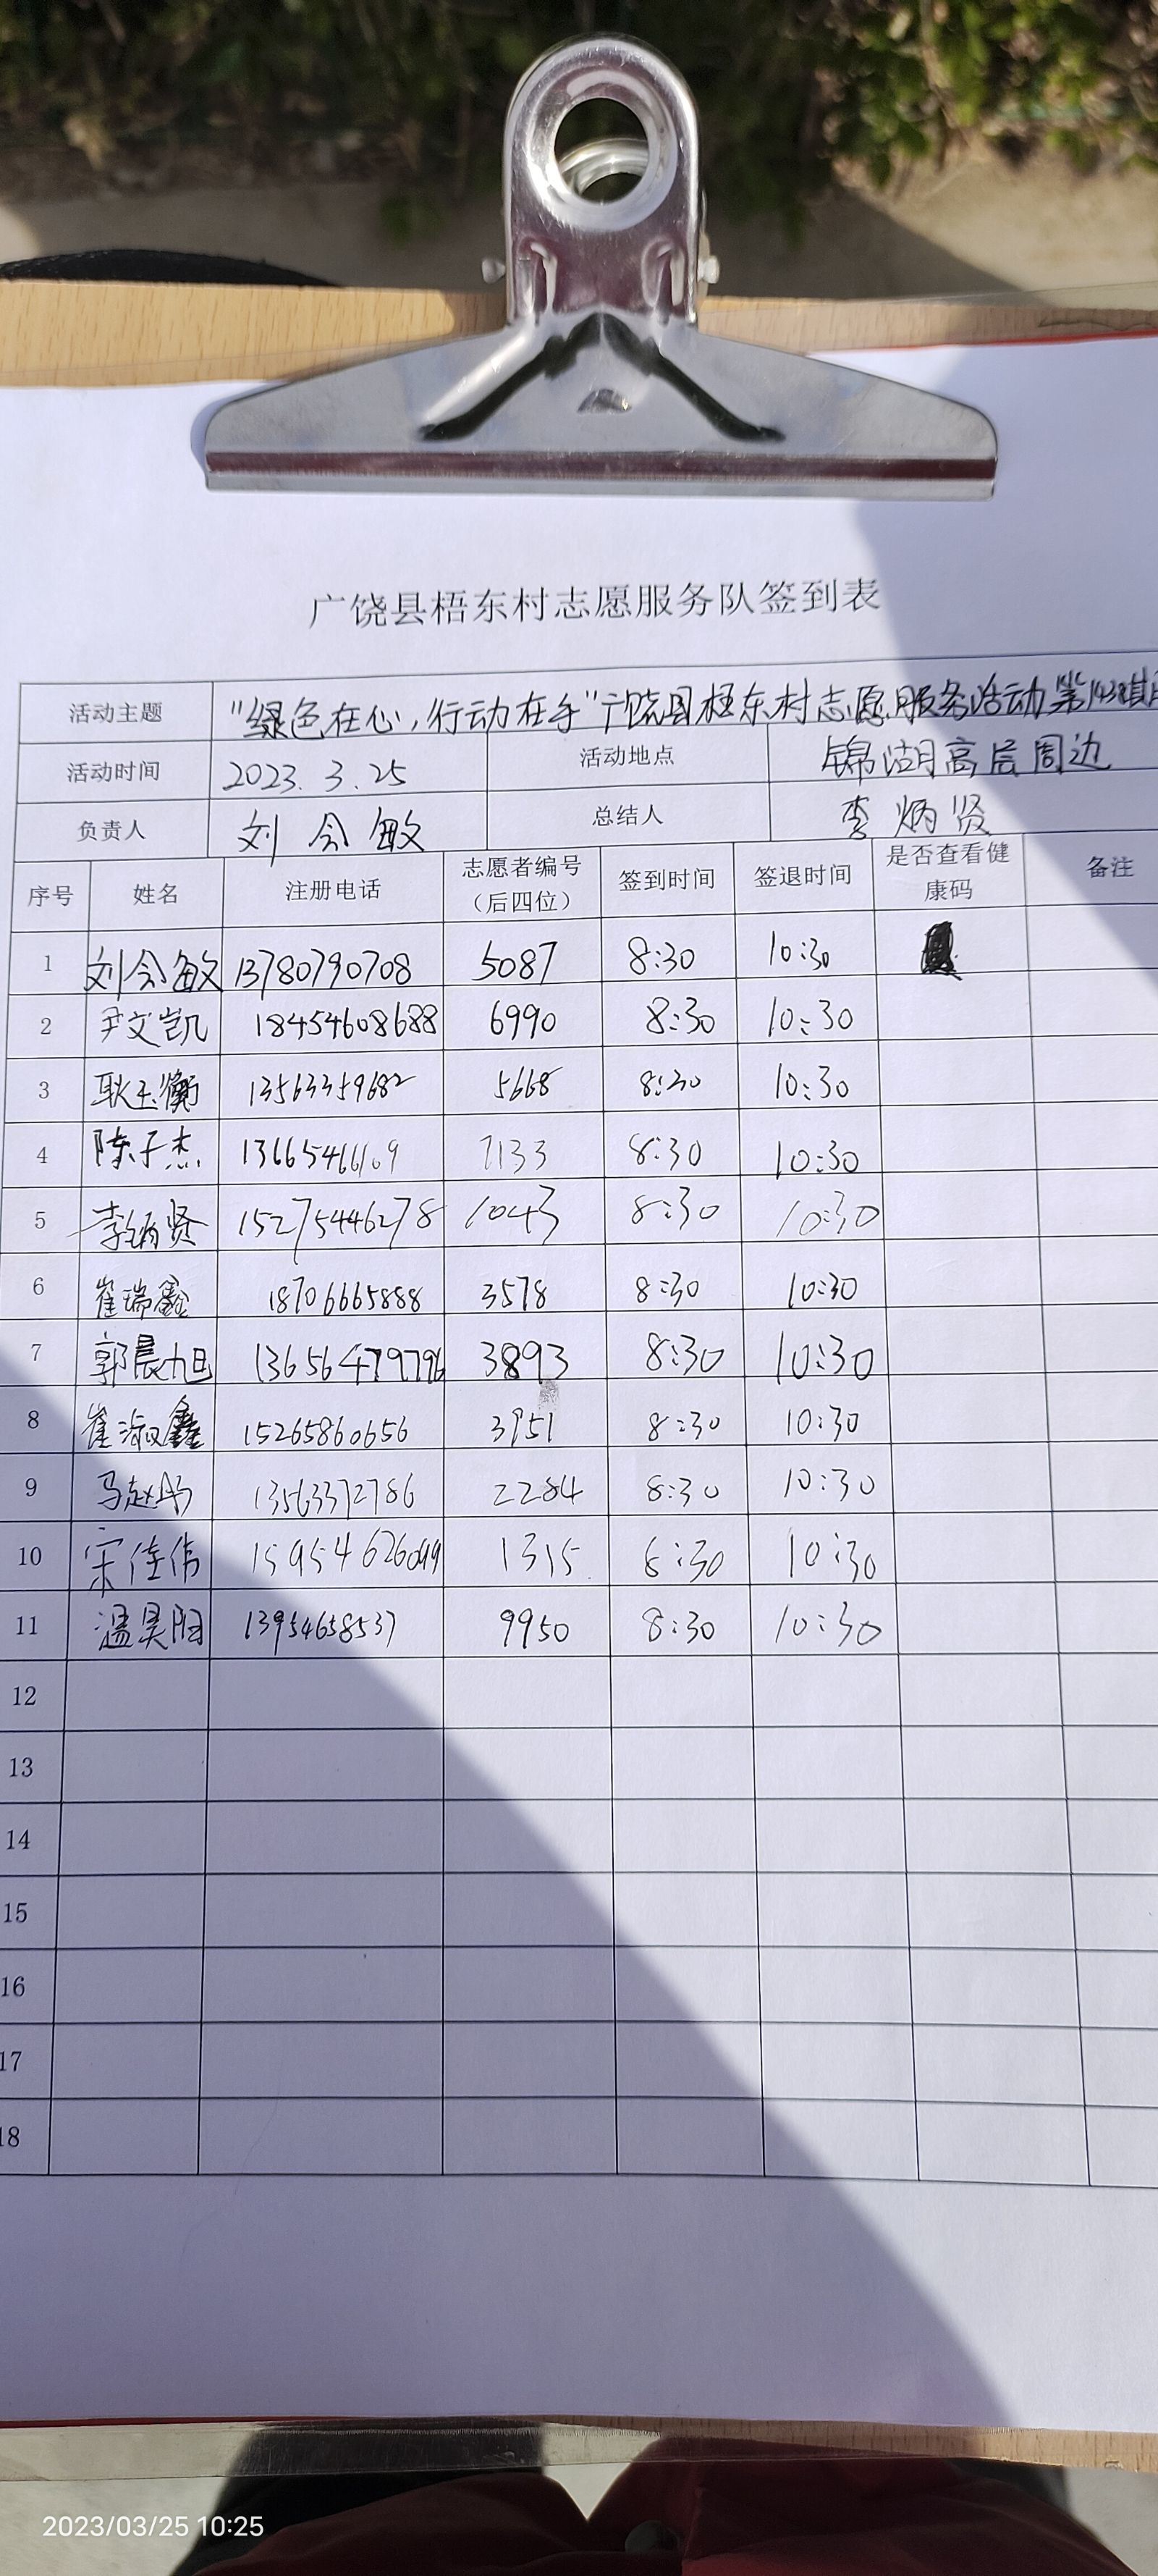 广饶县梧东村志愿服务队签到表
活动主题 "绿色在心,行动在手"广饶县梧东村志愿服务活动第143期
活动时间 2023.3.25 活动地点 锦湖高层周边
负责人 刘会敏 总结人 李炳贤
序号 姓名 注册电话 志愿者编号（后四位） 签到时间 签退时间 是否查看健康码 备注
1 刘会敏 13780790708 5087 8:30 10:30
2 尹文凯 18454608688 6990 8:30 10:30
3 耿玉衡 13563359682 5668 8:30 10:30
4 陈子杰 13665466109 7133 8:30 10:30
5 李炳贤 15275446278 1043 8:30 10:30
6 崔瑞鑫 18706665888 3578 8:30 10:30
7 郭晨旭 13656479796 3893 8:30 10:30
8 崔淑鑫 15265860656 3951 8:30 10:30
9 马赵 13563372786 2284 8:30 10:30
10 宋佳伟 15954626099 1315 8:30 10:30
11 温昊阳 13954658537 9950 8:30 10:30
12
13
14
15
16
17
18
2023/03/25 10:25